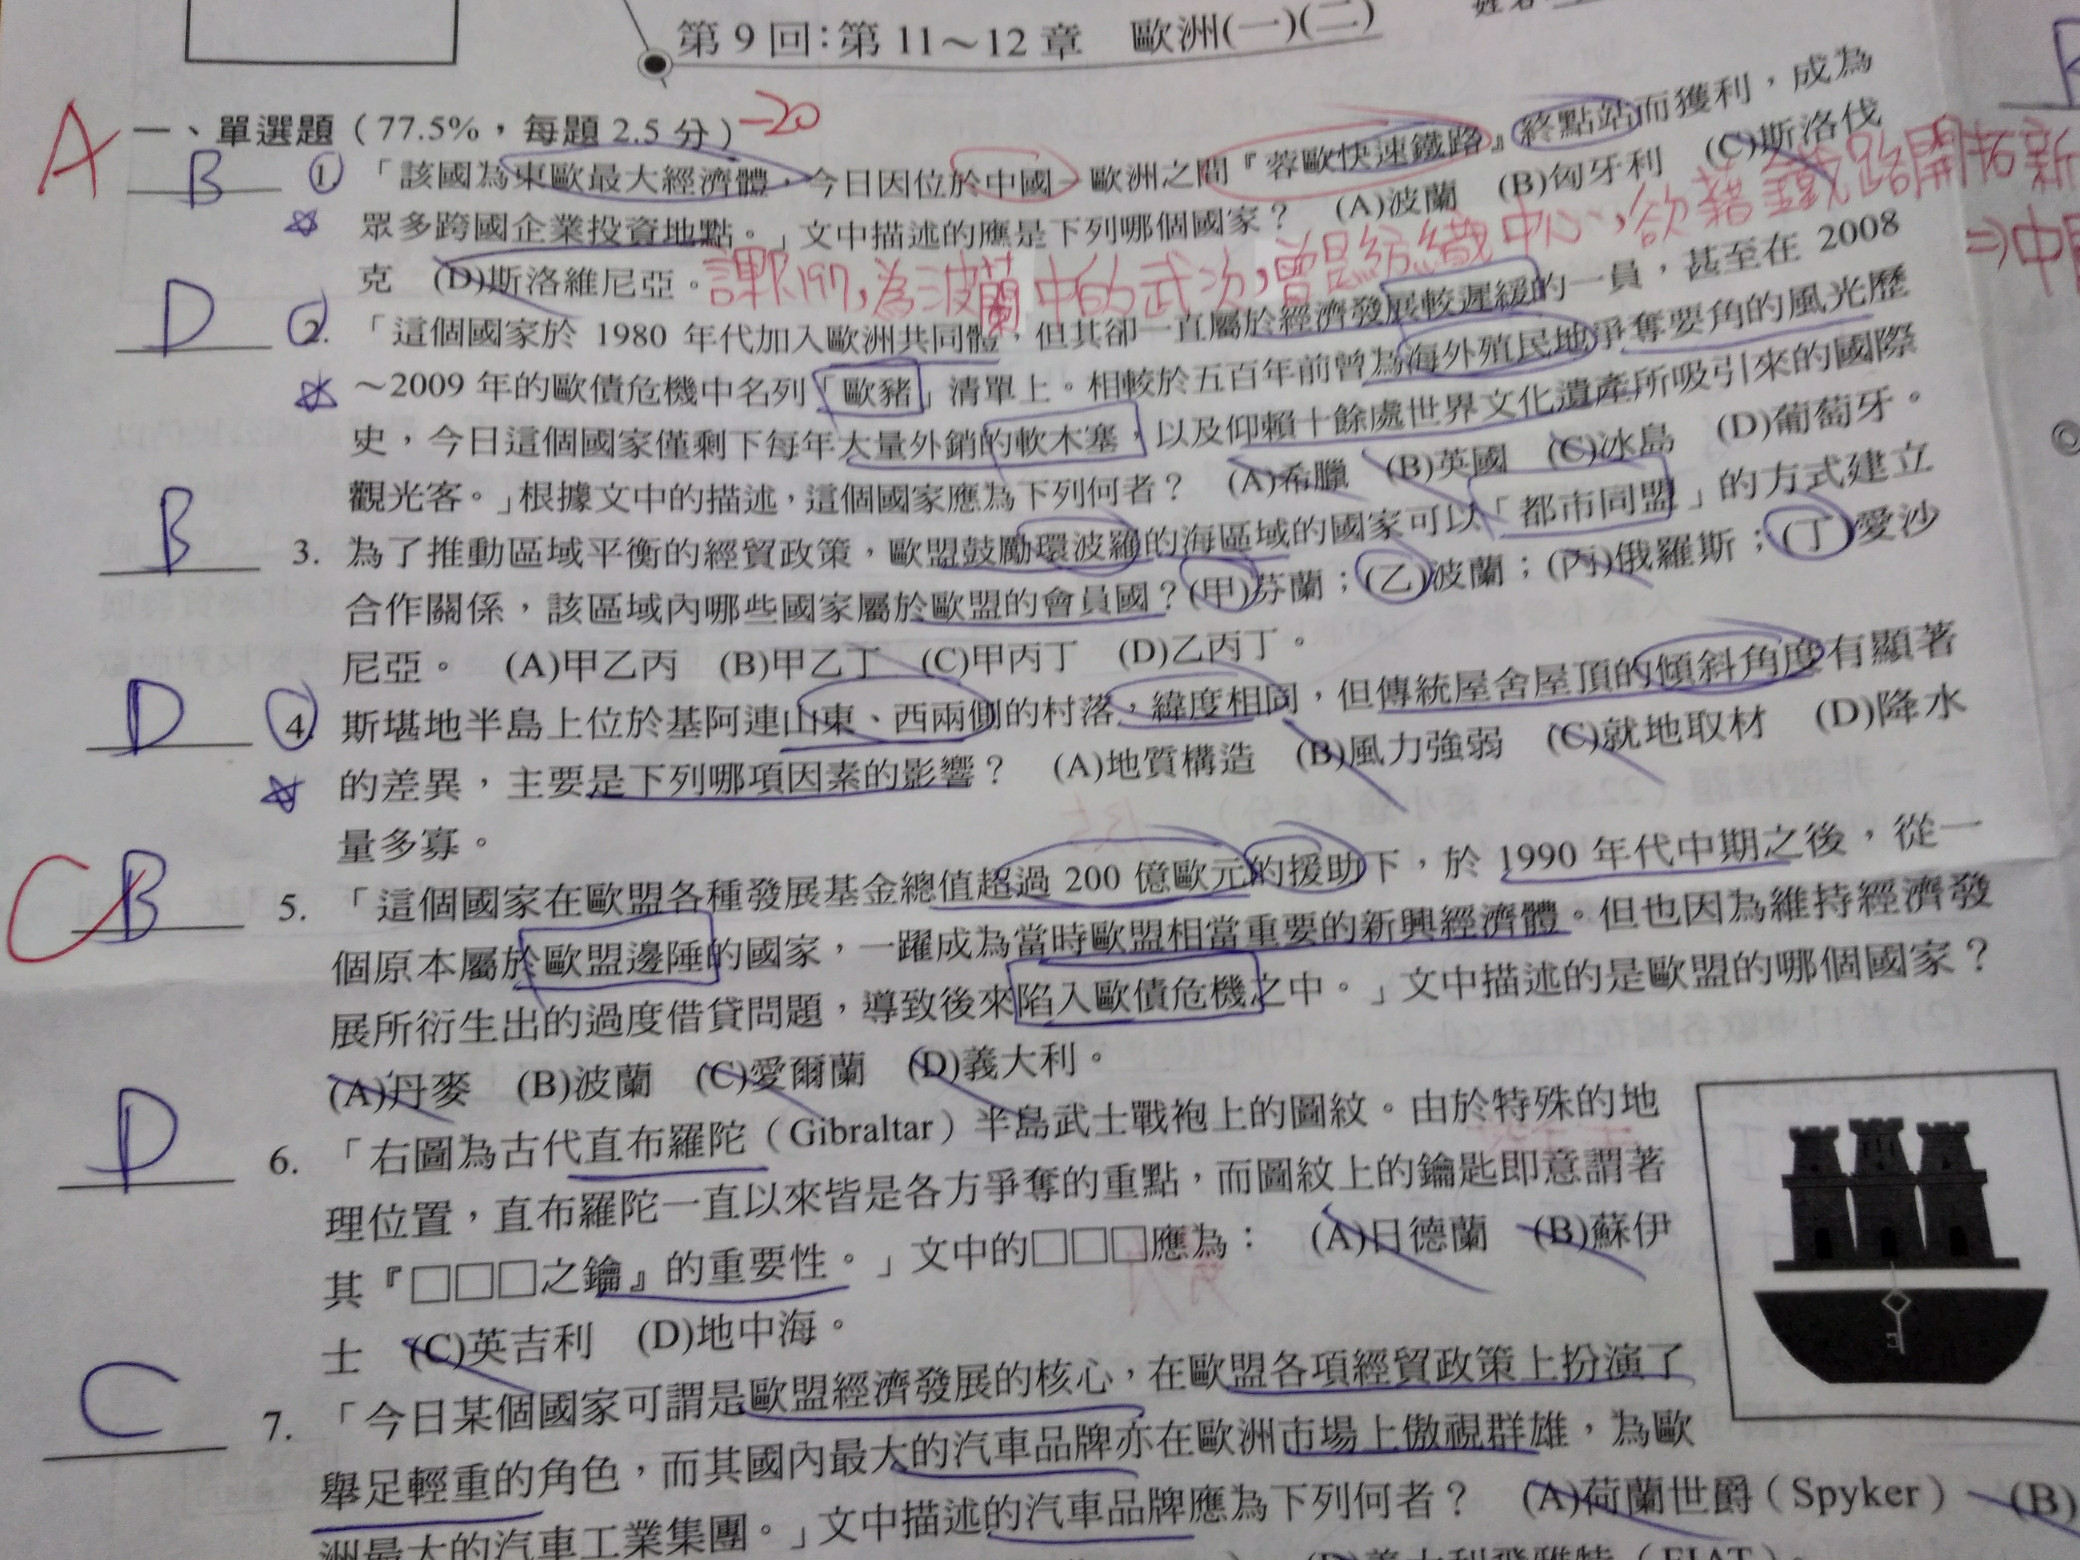 第 9 回：第 11～12 章　歐洲(一)(二)
A 一、單選題（77.5%，每題 2.5 分）-20
B 1. 「該國為東歐最大經濟體，今日因位於中國－歐洲之間『蓉歐快速鐵路』終點站而獲利，成為
眾多跨國企業投資地點。」文中描述的應是下列哪個國家？　(A)波蘭　(B)匈牙利　(C)斯洛伐
克　(D)斯洛維尼亞。
課P.197,為波蘭中的武次,曾是紡織中心,欲藉鐵路開拓新
⇒中
D 2. 「這個國家於 1980 年代加入歐洲共同體，但其卻一直屬於經濟發展較遲緩的一員，甚至在 2008
～2009 年的歐債危機中名列「歐豬」清單上。相較於五百年前曾為海外殖民地爭奪要角的風光歷
史，今日這個國家僅剩下每年大量外銷的軟木塞，以及仰賴十餘處世界文化遺產所吸引來的國際
觀光客。」根據文中的描述，這個國家應為下列何者？　(A)希臘　(B)英國　(C)冰島　(D)葡萄牙。
B 3. 為了推動區域平衡的經貿政策，歐盟鼓勵環波羅的海區域的國家可以「都市同盟」的方式建立
合作關係，該區域內哪些國家屬於歐盟的會員國？(甲)芬蘭；(乙)波蘭；(丙)俄羅斯；(丁)愛沙
尼亞。　(A)甲乙丙　(B)甲乙丁　(C)甲丙丁　(D)乙丙丁。
D 4. 斯堪地半島上位於基阿連山東、西兩側的村落，緯度相同，但傳統屋舍屋頂的傾斜角度有顯著
的差異，主要是下列哪項因素的影響？　(A)地質構造　(B)風力強弱　(C)就地取材　(D)降水
量多寡。
C B 5. 「這個國家在歐盟各種發展基金總值超過 200 億歐元的援助下，於 1990 年代中期之後，從一
個原本屬於歐盟邊陲的國家，一躍成為當時歐盟相當重要的新興經濟體。但也因為維持經濟發
展所衍生出的過度借貸問題，導致後來陷入歐債危機之中。」文中描述的是歐盟的哪個國家？
(A)丹麥　(B)波蘭　(C)愛爾蘭　(D)義大利。
D 6. 「右圖為古代直布羅陀（Gibraltar）半島武士戰袍上的圖紋。由於特殊的地
理位置，直布羅陀一直以來皆是各方爭奪的重點，而圖紋上的鑰匙即意謂著
其『□□□之鑰』的重要性。」文中的□□□應為：　(A)日德蘭　(B)蘇伊
士　(C)英吉利　(D)地中海。
C 7. 「今日某個國家可謂是歐盟經濟發展的核心，在歐盟各項經貿政策上扮演了
舉足輕重的角色，而其國內最大的汽車品牌亦在歐洲市場上傲視群雄，為歐
洲最大的汽車工業集團。」文中描述的汽車品牌應為下列何者？　(A)荷蘭世爵（Spyker）　(B)
(D)義大利飛雅特（FIAT）。